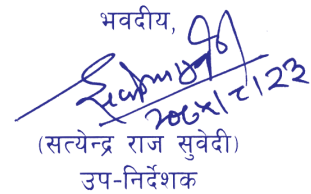 भवदीय,
(सत्येन्द्र राज सुवेदी)
उप-निर्देशक